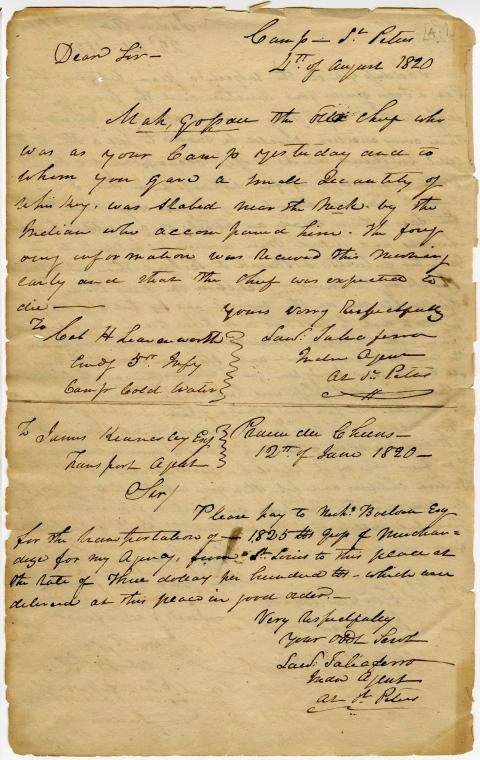 Camp - St Peters
Dear Sir -
4th of august 1820
Mah, gossau the chief who
was as your Camp yesterday and to
whom you gave a small Quantity of
Whiskey. was stabed near the Neck by the
Indian who accompanied him. The forg
oing information was received this morning
early and that the chief was expected to
die —
yours verry Respectfully
To
Col H Leavenworth
Lawr: Taliaferro
Comdg 5th Infy
Indn Agent
Camp Cold Water
At St Peters
To James Kennerley Esq
Prairie du Chiens -
Transport Agent
12th of June 1820 -
Sir/
Please pay to Nichs Boilvin Esq
for the transportation of - 1825 lbs gross of Merchan-
dize for my Agency, from St Louis to this place at
the rate of three dollars per hundred lbs - which were
delivered at this place in good order. -
Very Respectfully
Your Obdt Servt
Lawr: Taliaferro
Indn Agent
at St Peters